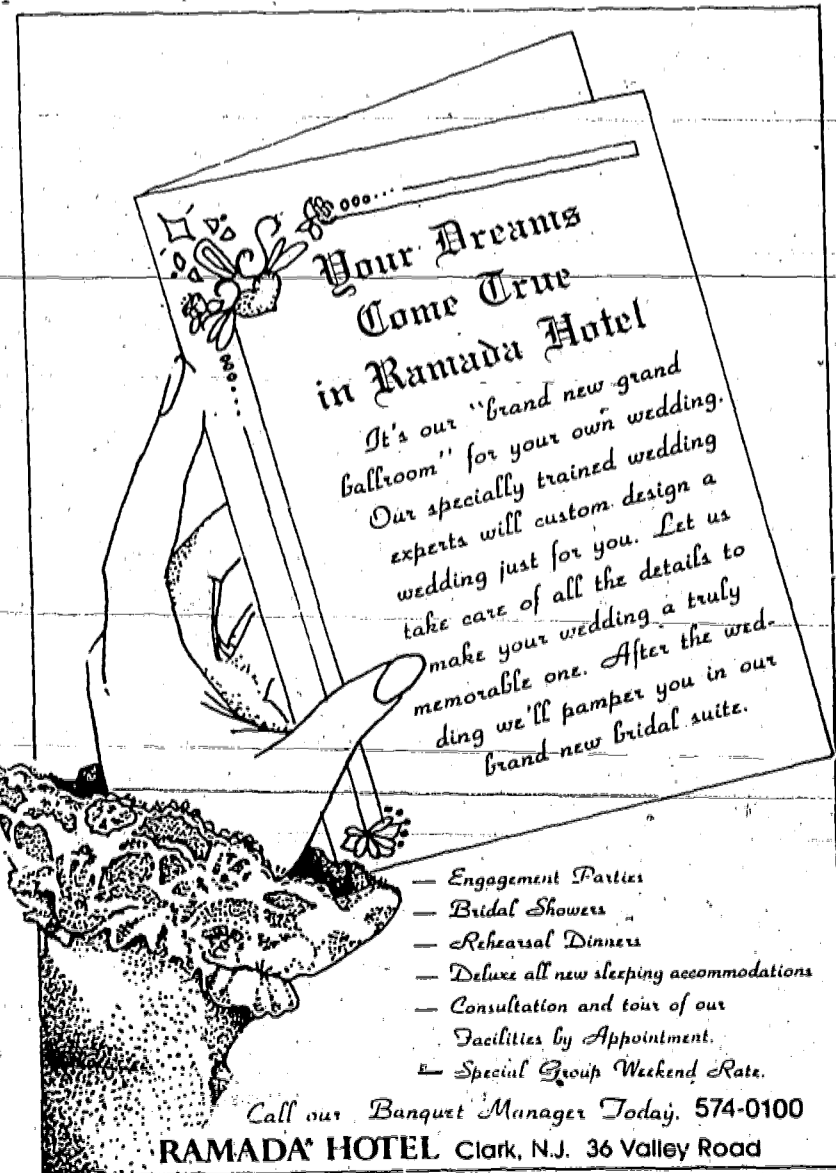 Your Dreams
Come True
in Ramada Hotel
It's our "brand new grand
ballroom" for your own wedding.
Our specially trained wedding
experts will custom design a
wedding just for you. Let us
take care of all the details to
make your wedding a truly
memorable one. After the wed-
ding we'll pamper you in our
brand new bridal suite.
— Engagement Parties
— Bridal Showers
— Rehearsal Dinners
— Deluxe all new sleeping accommodations
— Consultation and tour of our
Facilities by Appointment.
— Special Group Weekend Rate.
Call our Banquet Manager Today. 574-0100
RAMADA® HOTEL Clark, N.J. 36 Valley Road